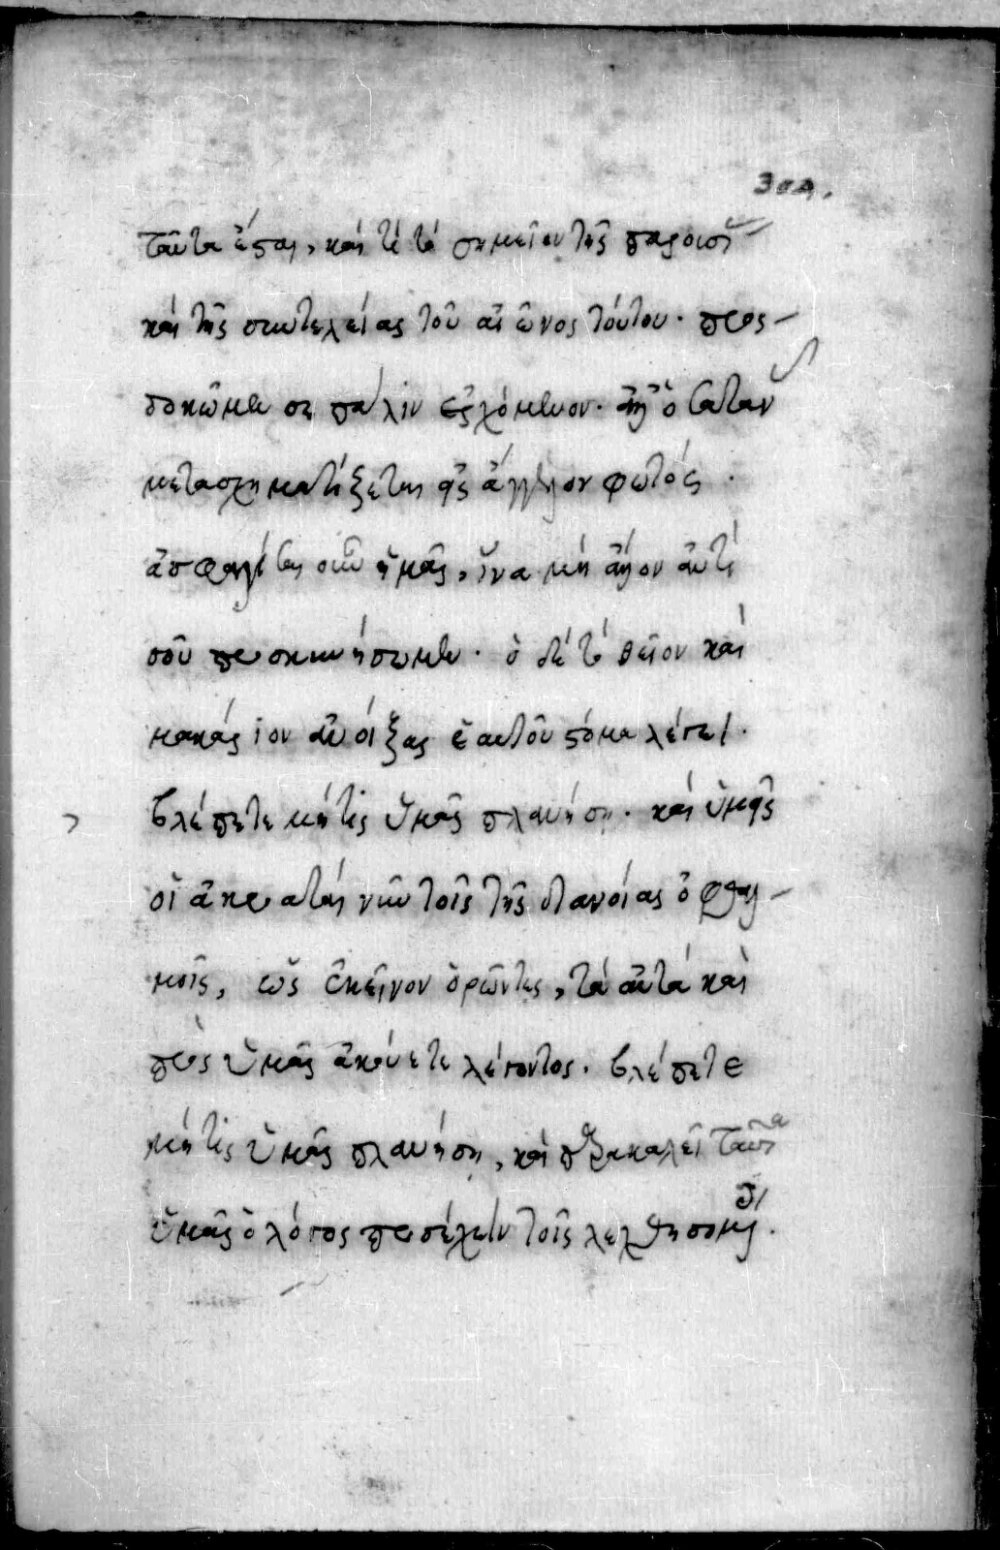 304.
ταῦτα ἔσται, καὶ τί τὸ σημεῖον τῆς παρουσί
καὶ τῆς συντελείας τοῦ αἰῶνος τούτου· προσ-
δοκῶμεν σε πάλιν ἐρχόμενον· ἀλλ' ὁ Σαταν
μετασχηματίζεται εἰς ἄγγελον φωτός·
ἀσφάλισαι οὖν ἡμᾶς, ἵνα μὴ ἄλλον ἀντί
σοῦ προσκυνήσωμεν· ὁ δὲ τὸ θεῖον καὶ
μακάριον ἀνοίξας ἑαυτοῦ στόμα λέγει·
βλέπετε μή τις ὑμᾶς πλανήση· καὶ ὑμεῖς
οἱ ἀκροαταὶ νῦν τοῖς τῆς διανοίας ὀφθαλ-
μοῖς, ὡς ἐκεῖνον ὁρῶντες, τὰ αὐτὰ καὶ
πρὸς ὑμᾶς ἀκούετε λέγοντος· βλέπετε
μή τις ὑμᾶς πλανήση, καὶ παρακαλεῖ πάντας
ὑμᾶς ὁ λόγος προσέχειν τοῖς λεχθησομένοις·